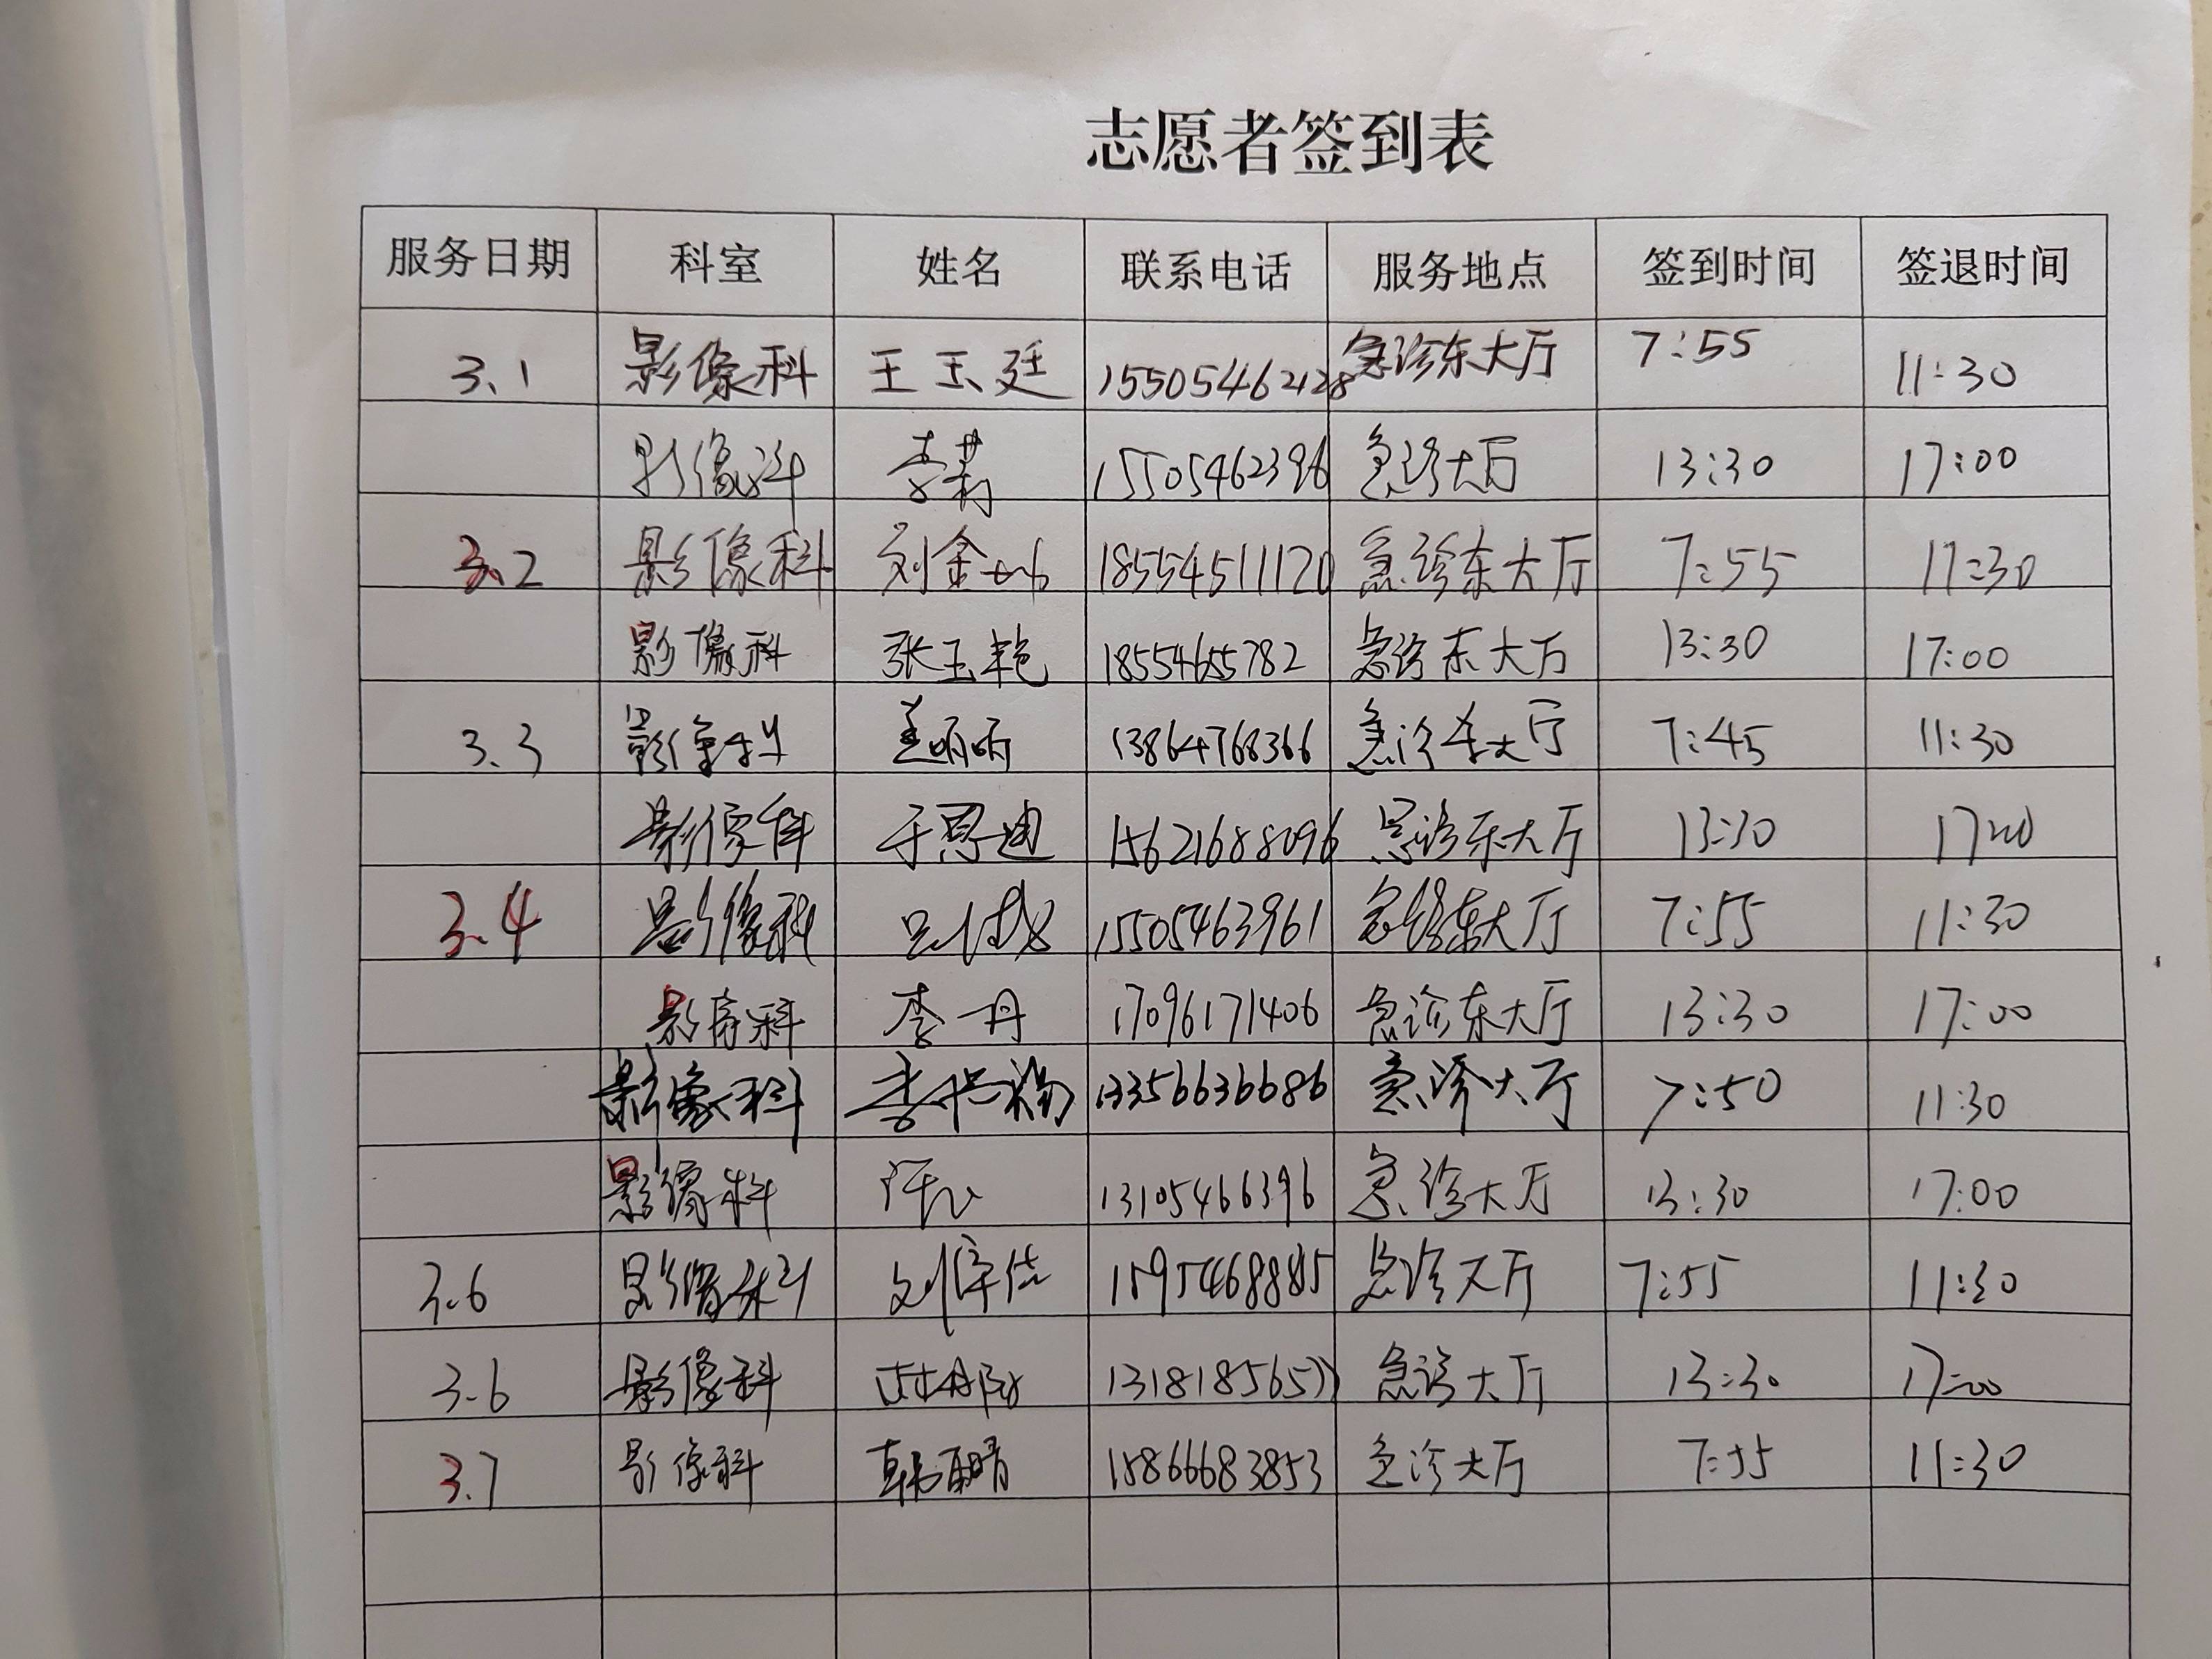 志愿者签到表
服务日期 科室 姓名 联系电话 服务地点 签到时间 签退时间
3.1 影像科 王玉廷 15505462128 急诊东大厅 7:55 11:30
影像科 李莉 15505462396 急诊大厅 13:30 17:00
3.2 影像科 刘金 18554511120 急诊东大厅 7:55 11:30
影像科 张玉艳 18554655782 急诊东大厅 13:30 17:00
3.3 影像科 姜丽丽 13864768366 急诊东大厅 7:45 11:30
影像科 于恩迪 15621688096 急诊东大厅 13:30 17:00
3.4 影像科 15505463961 急诊东大厅 7:55 11:30
影像科 李丹 17096171406 急诊东大厅 13:30 17:00
影像科 李 13356636686 急诊大厅 7:50 11:30
影像科 13105466396 急诊大厅 13:30 17:00
3.6 影像科 刘 急诊大厅 7:55 11:30
3.6 影像科 急诊大厅 13:30 17:00
3.7 影像科 韩 15866683853 急诊大厅 7:55 11:30